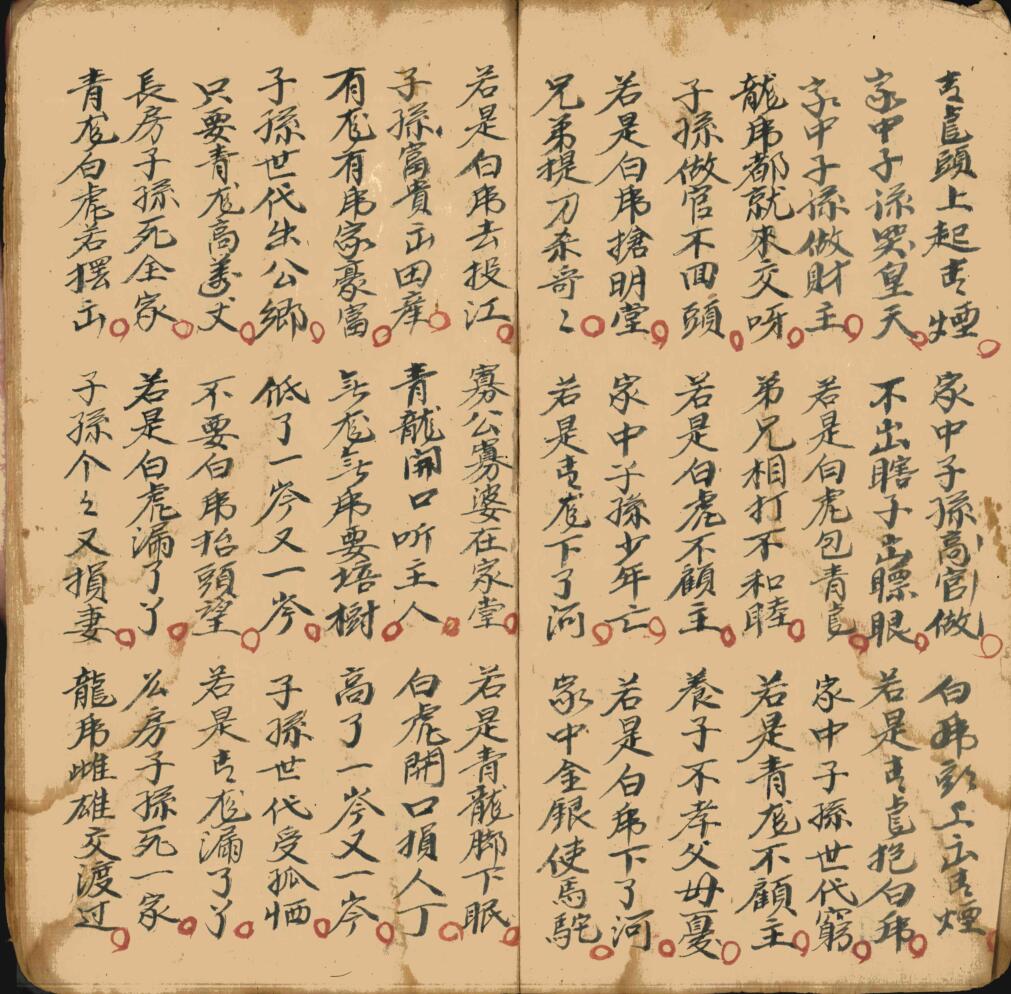 青龍頭上起青煙 家中子孫高官做 白虎頭上出青煙
家中子孫哭皇天 不出瞎子出瞟眼 若是青龍抱白虎
家中子孫做財主 若是白虎包青龍 家中子孫世代窮
龍虎都就來交呀 弟兄相打不和睦 若是青龙不顧主
子孫做官不回頭 若是白虎不顧主 養子不孝父母憂
若是白虎搶明堂 家中子孫少年亡 若是白虎下了河
兄弟提刀杀哥〻 若是青龙下了河 家中金銀使馬駝
若是白虎去投江 寡公寡婆在家堂 若是青龍脚下眠
子孫富貴出田産 青龍開口听主人 白虎開口損人丁
有龙有虎家豪富 無龙無虎要培樹 高了一岑又一岑
子孫世代出公鄉 低了一岑又一岑 子孫世代受孤恓
只要青龙高萬丈 不要白虎抬頭望 若是青龙漏了丫
長房子孫死全家 若是白虎漏了丫 公房子孫死一家
青龙白虎若摆出 子孫个々又損妻 龍虎雌雄交渡过